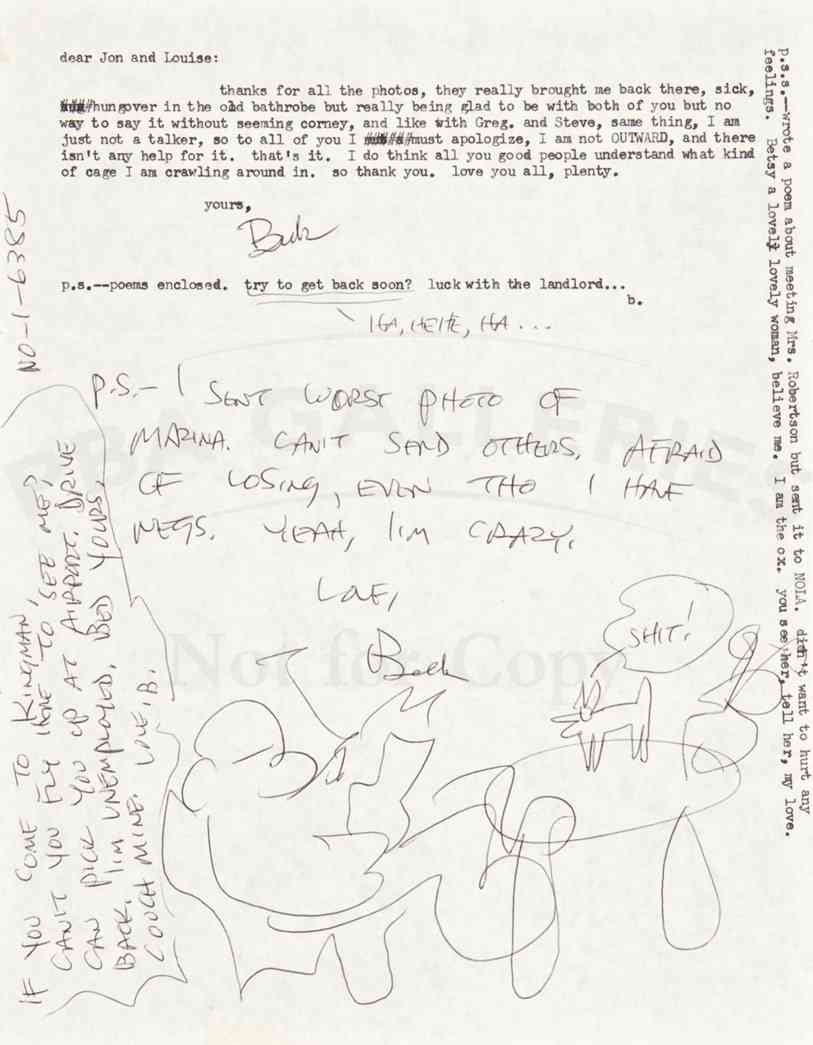 dear Jon and Louise:
thanks for all the photos, they really brought me back there, sick,
hungover in the old bathrobe but really being glad to be with both of you but no
way to say it without seeming corney, and like with Greg. and Steve, same thing, I am
just not a talker, so to all of you I must apologize, I am not OUTWARD, and there
isn't any help for it. that's it. I do think all you good people understand what kind
of cage I am crawling around in. so thank you. love you all, plenty.
yours,
Buk
p.s.--poems enclosed. try to get back soon? luck with the landlord...
b.
HA, HEHE, HA...
P.S.- I SENT WORST PHOTO OF
MARINA. CAN'T SEND OTHERS. AFRAID
OF LOSING, EVEN THO I HAVE
NEGS. YEAH, I'M CRAZY.
LOVE,
Buk
SHIT!
NO-1-6385
IF YOU COME TO KINGMAN,
CAN'T YOU FLY HERE TO SEE ME?
CAN PICK YOU UP AT AIRPORT. DRIVE
BACK. I'M UNEMPLOYED. BED YOURS,
COUCH MINE. LOVE, B.
p.s.s.--wrote a poem about meeting Mrs. Robertson but sent it to NOLA. didn't want to hurt any
feelings. Betsy a lovely lovely woman, believe me. I am the ox. you see her, tell her, my love.
PBA GALLERIES
Not for Copy